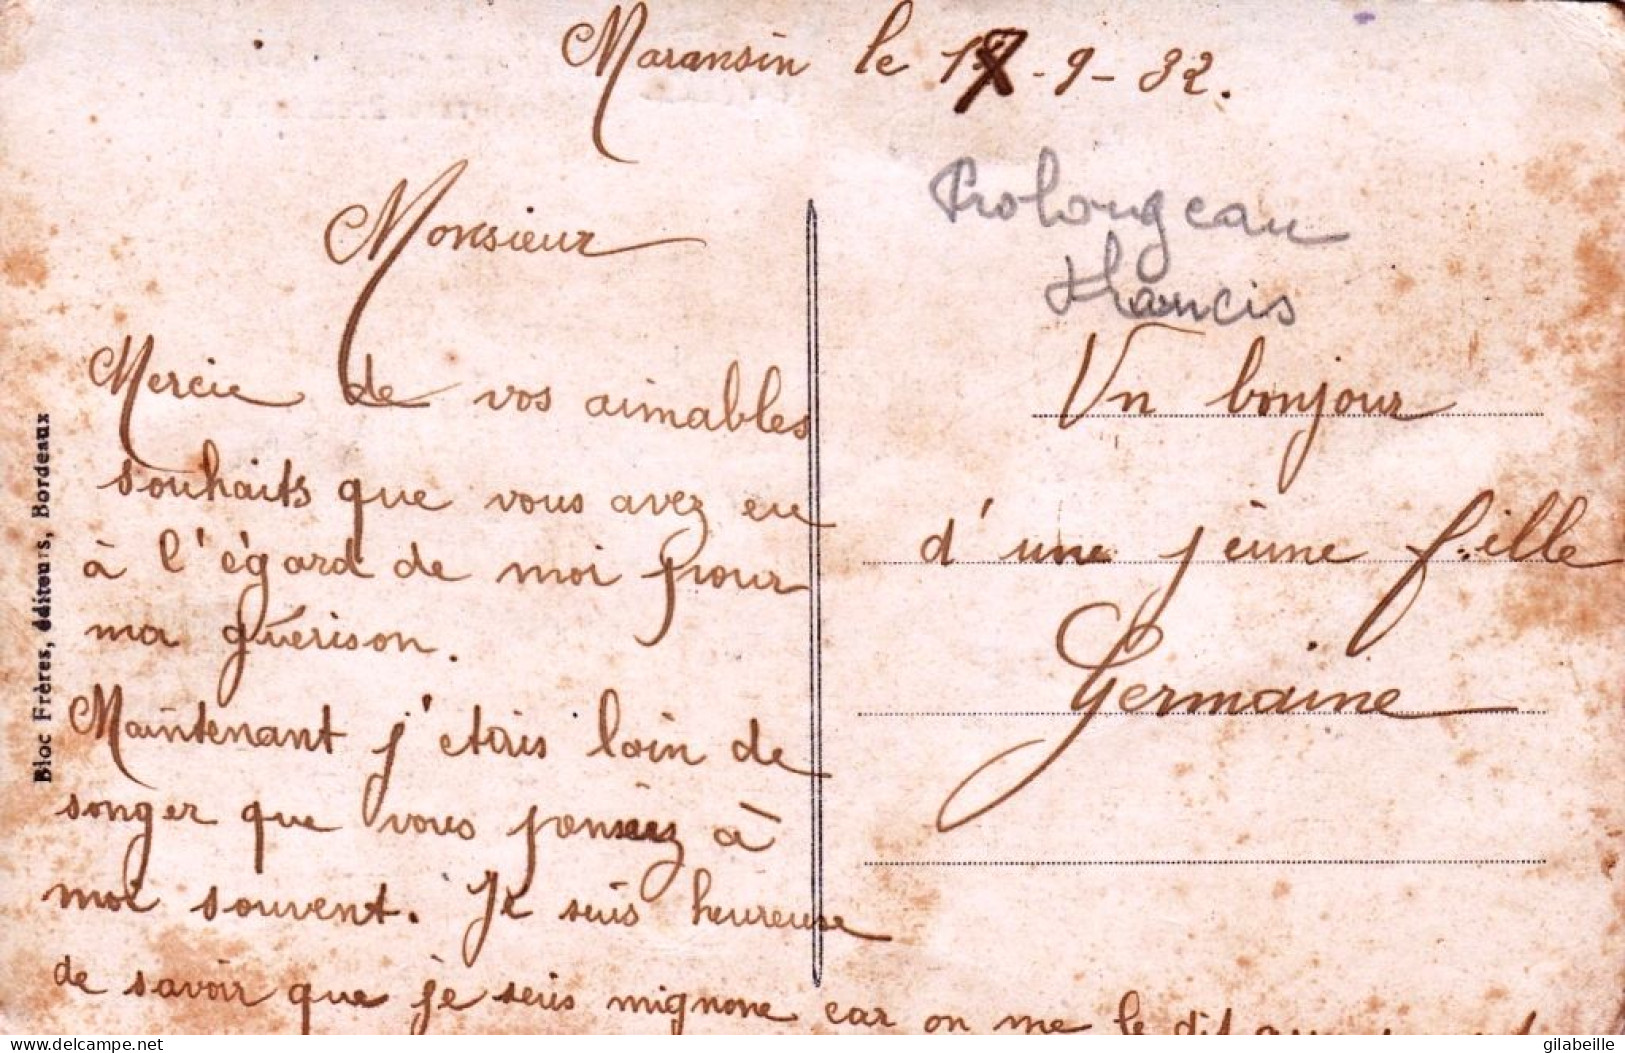 Maransin le 17-9-32.
Prolongeau
Francis
Monsieur
Mercie de vos aimables
souhaits que vous avez eu
à l'égard de moi pour
ma guérison.
Maintenant j'etais loin de
songer que vous pensiez à
moi souvent. Je suis heureuse
de savoir que je suis mignone car on me le dit
Un bonjour
d'une jeune fille
Germaine
Bloc Frères, éditeurs, Bordeaux
delcampe.net
gilabeille